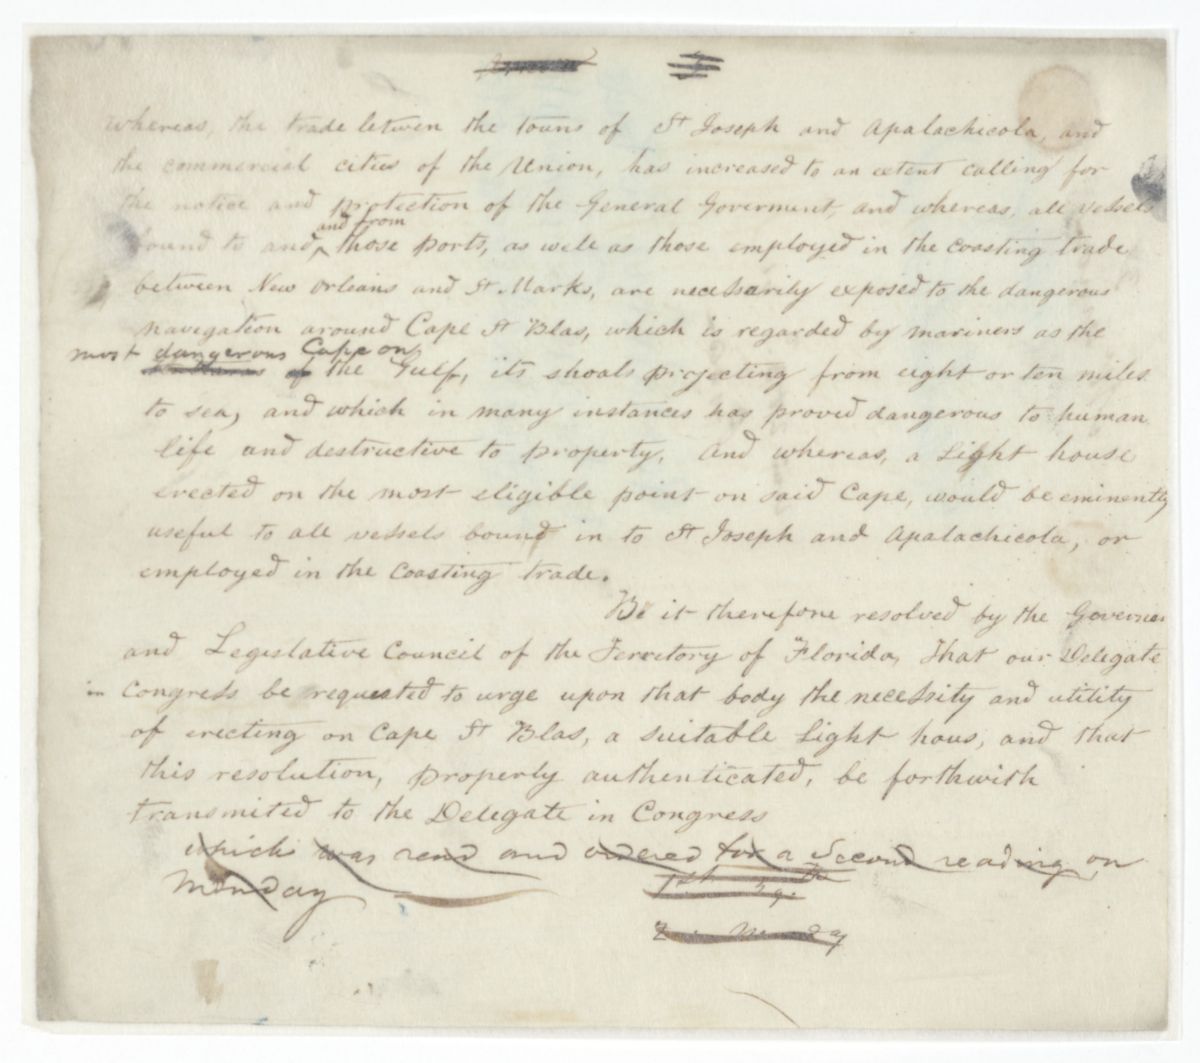 whereas, the trade between the towns of St Joseph and Apalachicola, and
the commercial cities of the Union, has increased to an extent calling for
the notice and protection of the General Goverment, and whereas, all vessels
and from
bound to and those ports, as well as those employed in the coasting trade
between New Orleans and St Marks, are necessarily exposed to the dangerous
navigation around Cape St Blas, which is regarded by mariners as the
most dangerous Cape on
of the Gulf, its shoals projecting from eight or ten miles
to sea, and which in many instances has proved dangerous to human
life and destructive to property. And whereas, a Light house
erected on the most eligible point on said Cape, would be eminently
useful to all vessels bound in to St Joseph and Apalachicola, or
employed in the coasting trade.
Be it therefore resolved by the Governor
and Legislative Council of the Territory of Florida, That our Delegate
in Congress be requested to urge upon that body the necessity and utility
of erecting on Cape St Blas, a suitable Light hous, and that
this resolution, properly authenticated, be forthwith
transmited to the Delegate in Congress
which was read and ordered for a Second reading on
Monday